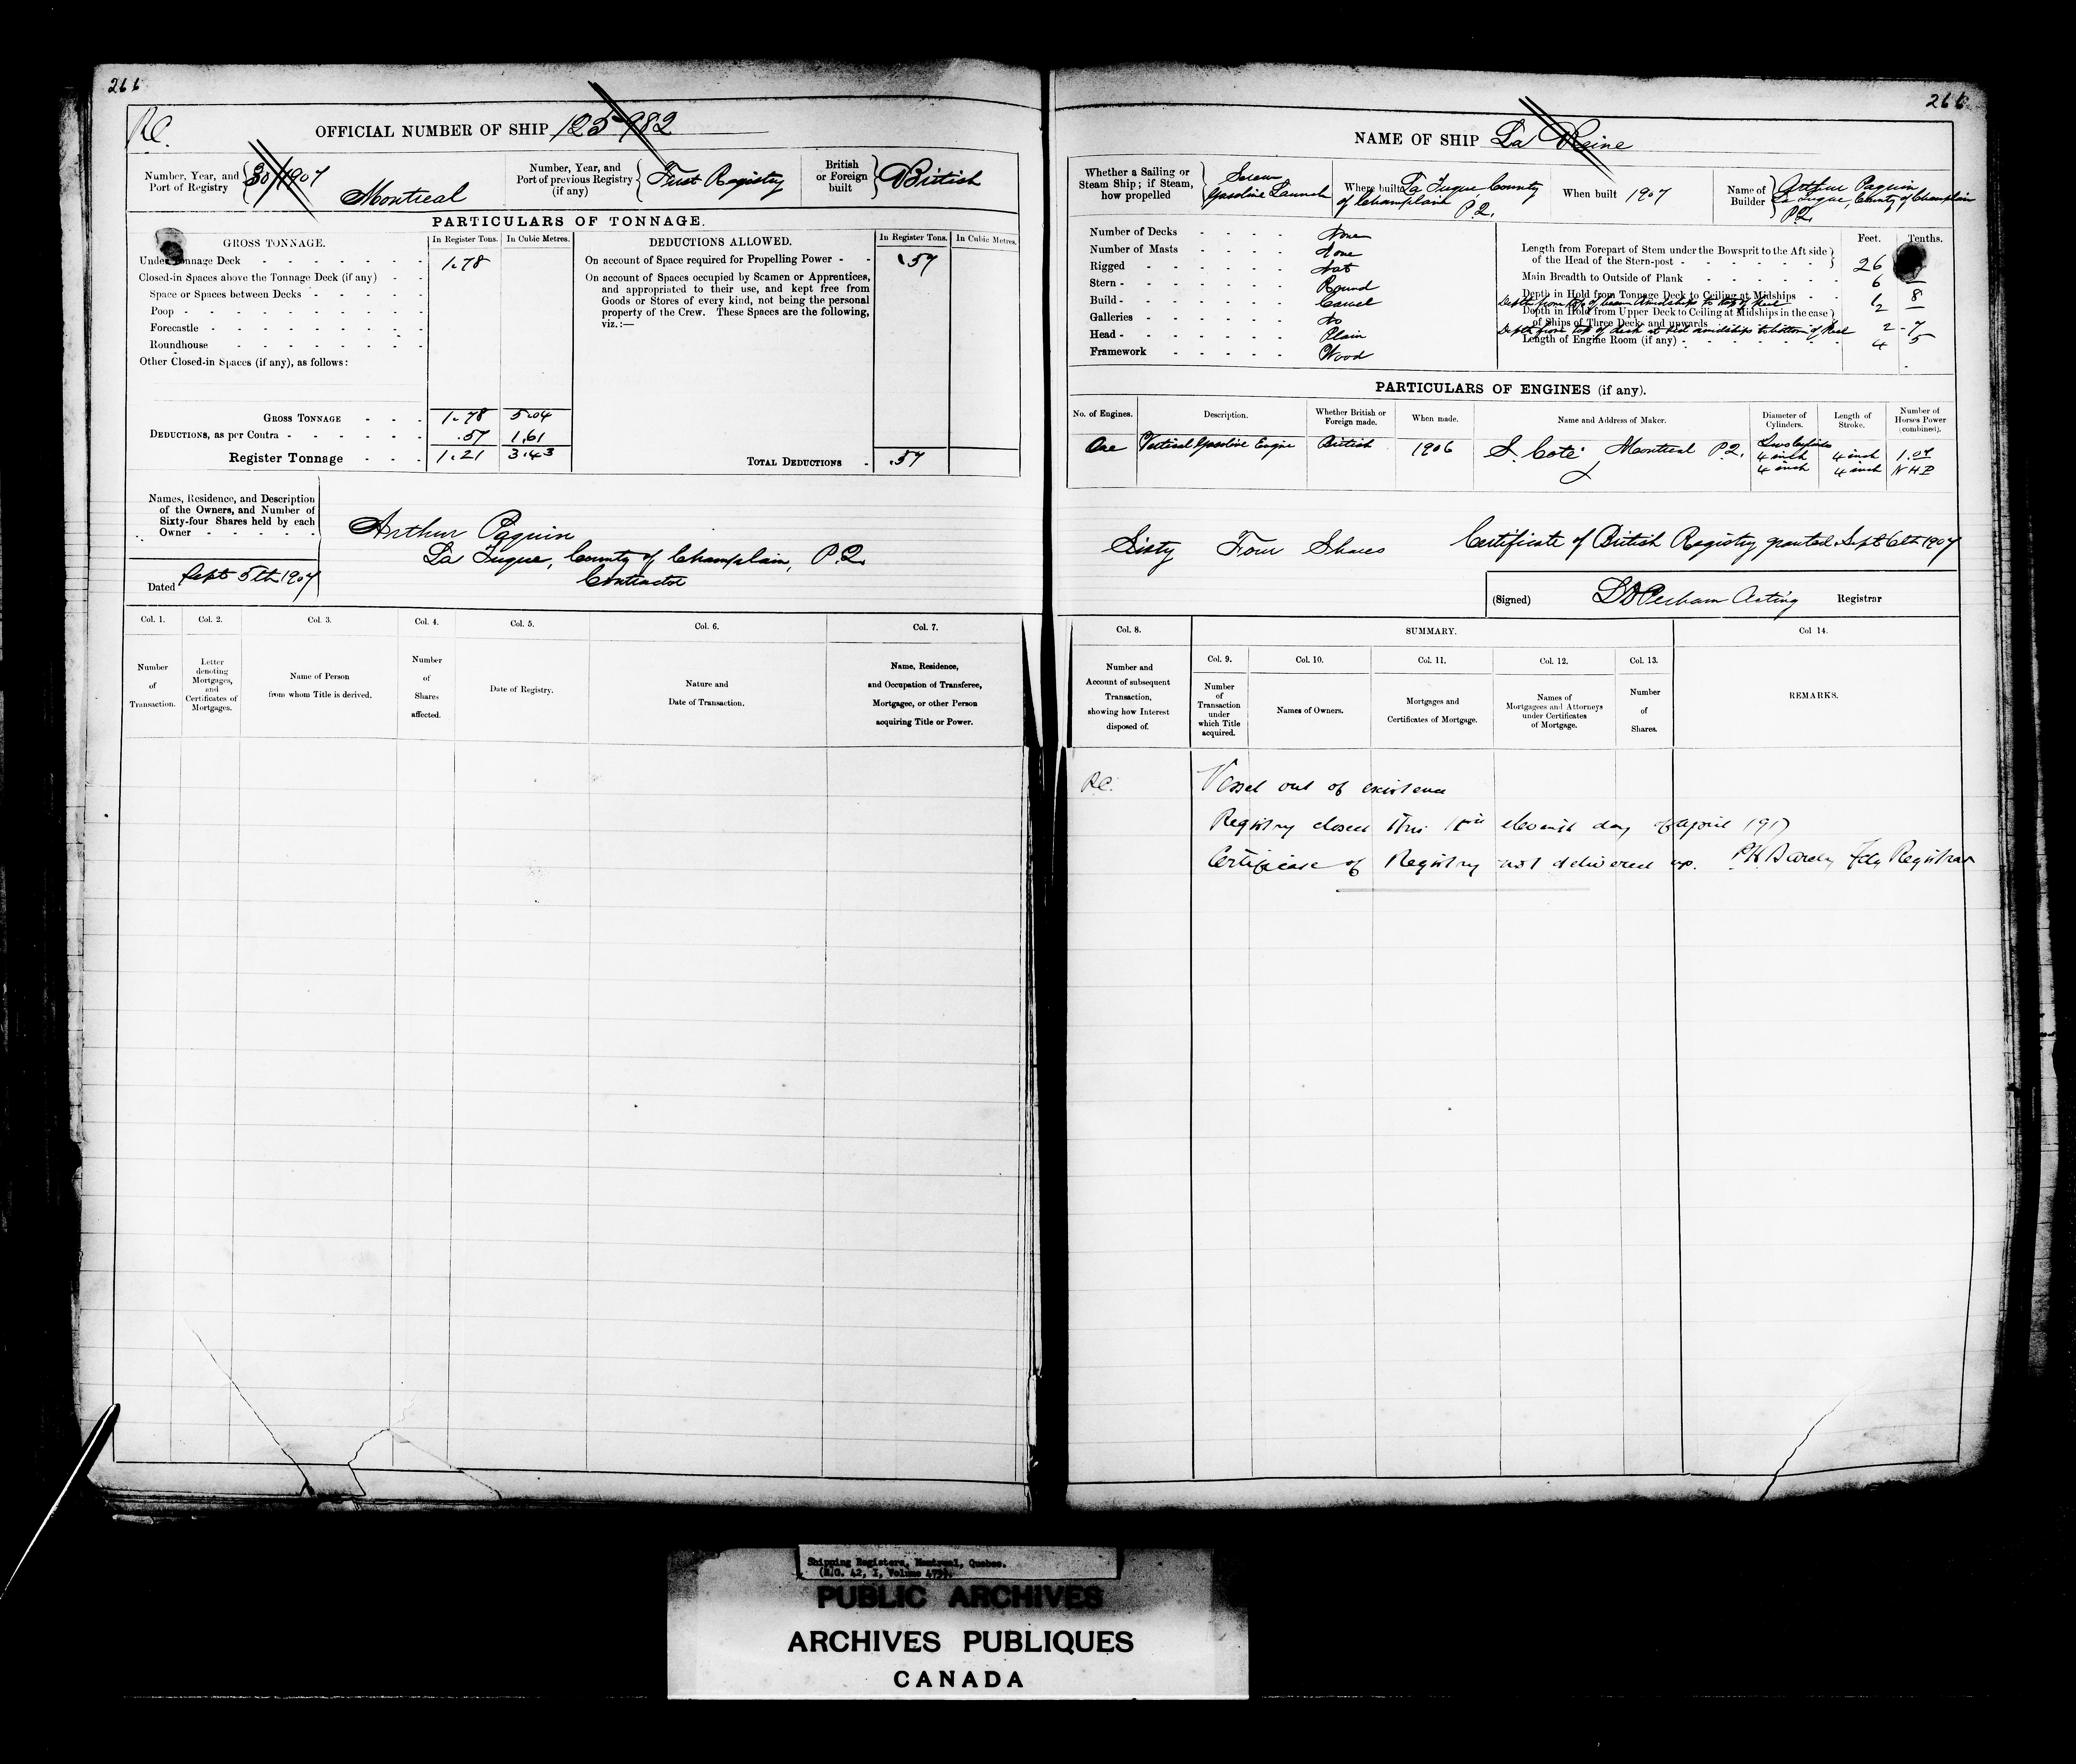 266
R.C.
OFFICIAL NUMBER OF SHIP 125982
Number, Year, and Port of Registry 30/1907 Montreal
Number, Year, and Port of previous Registry (if any) First Registry
British or Foreign built British
PARTICULARS OF TONNAGE.
GROSS TONNAGE. In Register Tons. In Cubic Metres.
Under Tonnage Deck 1.78
Closed-in Spaces above the Tonnage Deck (if any)
Space or Spaces between Decks
Poop
Forecastle
Roundhouse
Other Closed-in Spaces (if any), as follows:
GROSS TONNAGE 1.78 5.04
DEDUCTIONS, as per Contra .57 1.61
Register Tonnage 1.21 3.43
DEDUCTIONS ALLOWED. In Register Tons. In Cubic Metres.
On account of Space required for Propelling Power .57
On account of Spaces occupied by Seamen or Apprentices,
and appropriated to their use, and kept free from
Goods or Stores of every kind, not being the personal
property of the Crew. These Spaces are the following,
viz.:—
TOTAL DEDUCTIONS .57
Names, Residence, and Description
of the Owners, and Number of
Sixty-four Shares held by each
Owner
Arthur Paquin
La Tuque, County of Champlain, P.Q.
Contractor
Dated Sept 5th 1907
Col. 1. Col. 2. Col. 3. Col. 4. Col. 5. Col. 6. Col. 7.
Number of Transaction.
Letter denoting Mortgages, and Certificates of Mortgages.
Name of Person from whom Title is derived.
Number of Shares affected.
Date of Registry.
Nature and Date of Transaction.
Name, Residence, and Occupation of Transferee, Mortgagee, or other Person acquiring Title or Power.
266
NAME OF SHIP La Reine
Whether a Sailing or Steam Ship; if Steam, how propelled Screw Gasoline Launch
Where built La Tuque, County of Champlain P.Q.
When built 1907
Name of Builder Arthur Paquin La Tuque, County of Champlain P.Q.
Number of Decks None
Number of Masts None
Rigged Not
Stern Round
Build Carvel
Galleries No
Head Plain
Framework Wood
Feet. Tenths.
Length from Forepart of Stem under the Bowsprit to the Aft side
of the Head of the Stern-post 26
Main Breadth to Outside of Plank 6
Depth in Hold from Tonnage Deck to Ceiling at Midships 1 8
Depth from top of beam Amidships to top of keel 2
Depth in Hold from Upper Deck to Ceiling at Midships in the case
of Ships of Three Decks and upwards
Depth from top of deck at side amidships to bottom of keel 2 7
Length of Engine Room (if any) 4 5
PARTICULARS OF ENGINES (if any).
No. of Engines. Description. Whether British or Foreign made. When made. Name and Address of Maker. Diameter of Cylinders. Length of Stroke. Number of Horses Power (combined).
One Vertical Gasoline Engine British 1906 S. Coté Montreal P.Q. Two Cylinders
4 inch 4 inch 1.07
4 inch 4 inch NHP
Sixty Four Shares
Certificate of British Registry granted Sept 6th 1907
(Signed) Acting Registrar
Col. 8. SUMMARY. Col 14.
Col. 9. Col. 10. Col. 11. Col. 12. Col. 13.
Number and Account of subsequent Transaction, showing how Interest disposed of.
Number of Transaction under which Title acquired.
Names of Owners.
Mortgages and Certificates of Mortgage.
Names of Mortgagees and Attorneys under Certificates of Mortgage.
Number of Shares.
REMARKS.
R.C. Vessel out of existence
Registry closed this eleventh day of April 1917
Certificate of Registry not delivered up. Registrar
Shipping Registers, Montreal, Quebec.
PUBLIC ARCHIVES
ARCHIVES PUBLIQUES
CANADA